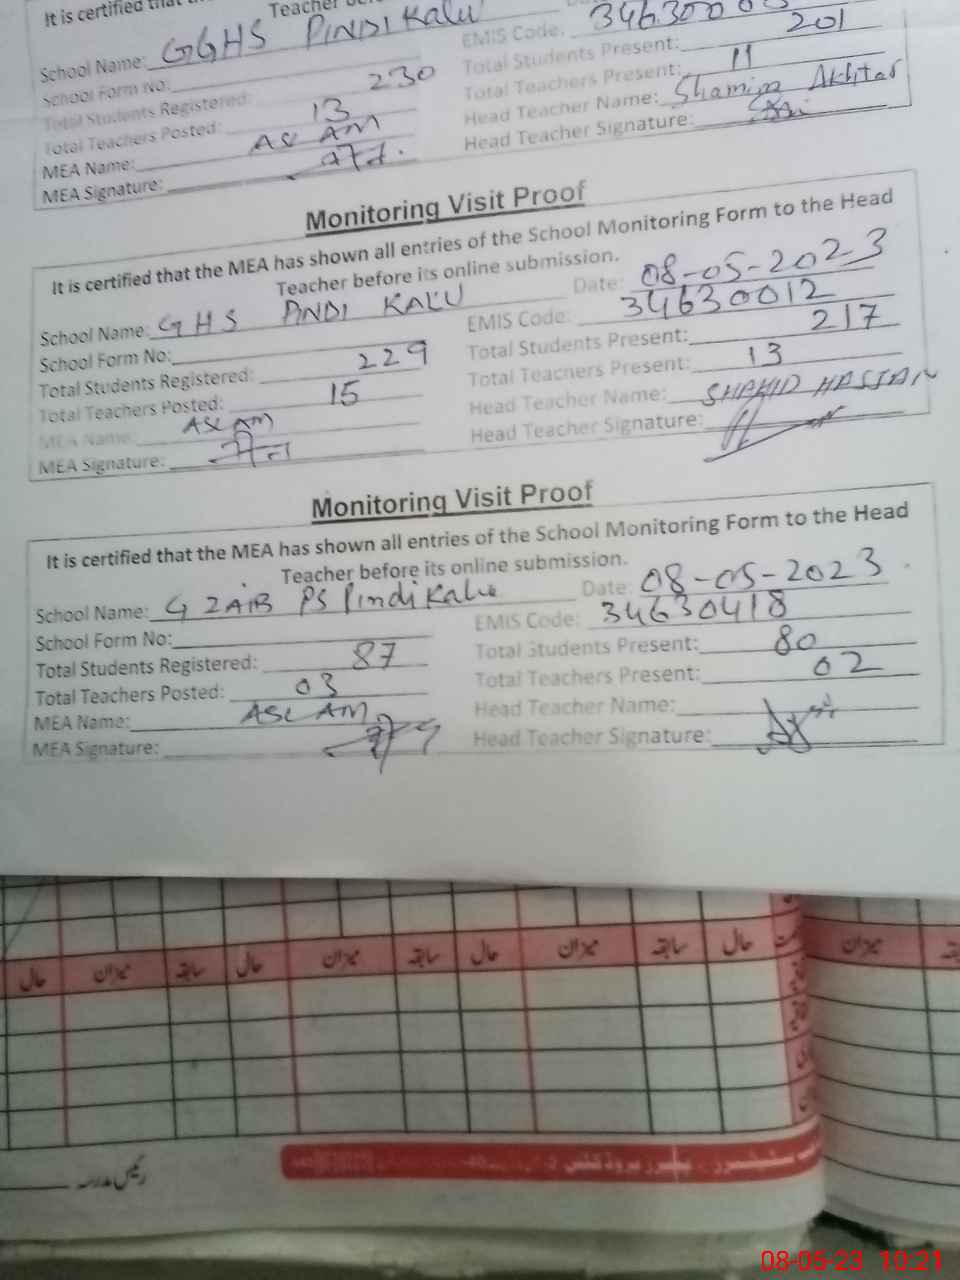 It is certified that
Teacher
School Name: GGHS PINDI Kalu EMIS Code:
School Form No: Total Students Present: 201
Total Students Registered: 230 Total Teachers Present: 11
Total Teachers Posted: 13 Head Teacher Name: Shamim Akhtar
MEA Name: ASLAM Head Teacher Signature:
MEA Signature:
Monitoring Visit Proof
It is certified that the MEA has shown all entries of the School Monitoring Form to the Head
Teacher before its online submission. Date: 08-05-2023
School Name: GHS PINDI KALU EMIS Code: 34630012
School Form No: Total Students Present: 217
Total Students Registered: 229 Total Teachers Present: 13
Total Teachers Posted: 15 Head Teacher Name: SHAHID HASSAN
MEA Name: ASLAM Head Teacher Signature:
MEA Signature:
Monitoring Visit Proof
It is certified that the MEA has shown all entries of the School Monitoring Form to the Head
Teacher before its online submission. Date: 08-05-2023
School Name: G ZAIB PS Pindi Kalu EMIS Code: 34630418
School Form No: Total Students Present: 80
Total Students Registered: 87 Total Teachers Present: 02
Total Teachers Posted: 03 Head Teacher Name:
MEA Name: ASLAM Head Teacher Signature:
MEA Signature:
میزان حال سابقہ میزان حال سابقہ میزان حال سابقہ میزان حال
رئیس مدرسہ
08-05-23 10:21